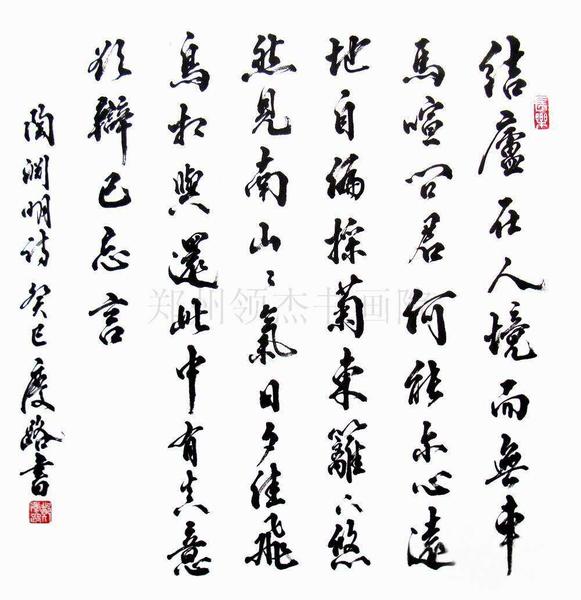 結廬在人境而無車
馬喧问君何能尔心遠
地自偏採菊東籬下悠
然見南山〻氣日夕佳飛
鳥相與還此中有真意
欲辯已忘言
陶渊明诗 癸巳 路書
郑州领杰书画院